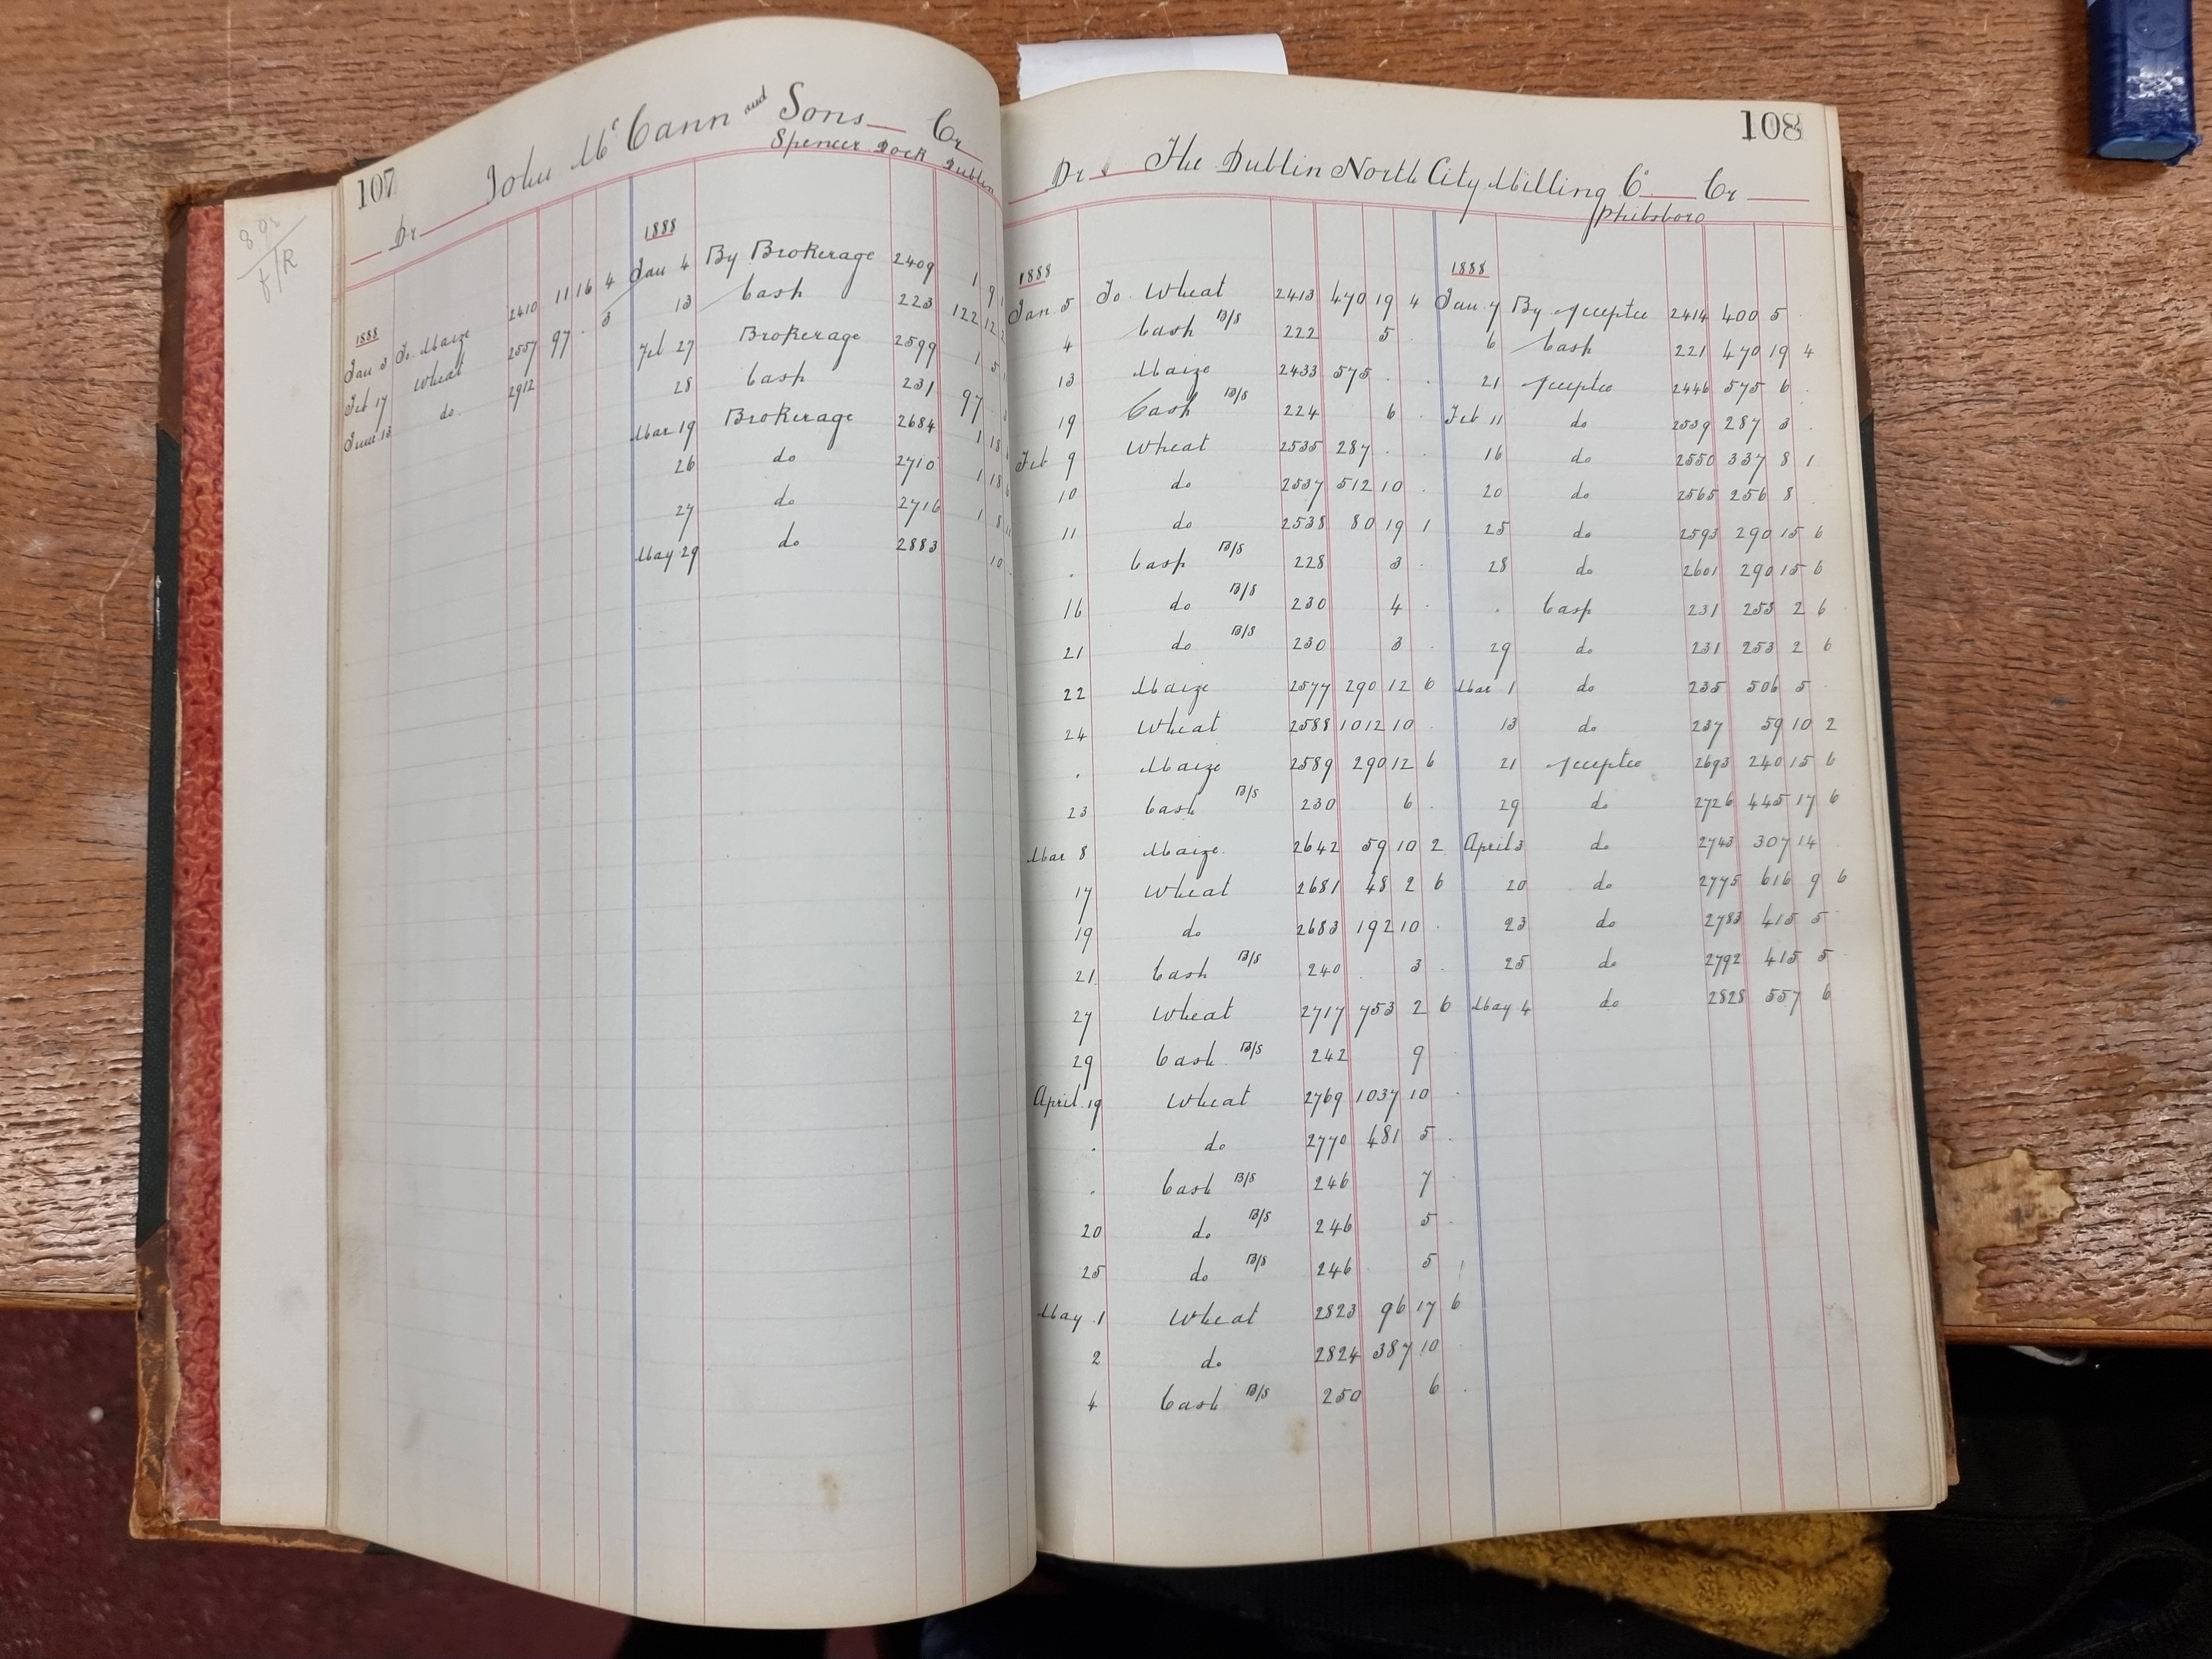 107
John McCann and Sons Cr
Spencer Dock Dublin
Dr
1888
Jan 3 To Maize 2410 11 16 4
Feb 17 Wheat 2557 97 . 3
June 13 do. 2912
1888
Jan 4 By Brokerage 2409 1 9
13 Cash 223 122 12
Feb 27 Brokerage 2599 1 5
28 Cash 231 97
Mar 19 Brokerage 2684 1 18
26 do 2710 1 18
27 do 2716 1 8
May 29 do 2883 10
108
Dr The Dublin North City Milling Co Cr
Phibsboro
1888
Jan. 5 To Wheat 2413 470 19 4
4 Cash B/S 222 5 .
13 Maize 2433 575 . .
19 Cash B/S 224 6 .
Feb 9 Wheat 2535 287 . .
10 do 2537 512 10 .
11 do 2538 80 19 1
. Cash B/S 228 3 .
16 do B/S 230 4 .
21 do B/S 230 3 .
22 Maize 2577 290 12 6
24 Wheat 2588 1012 10 .
. Maize 2589 290 12 6
23 Cash B/S 230 6 .
Mar 8 Maize. 2642 59 10 2
17 Wheat 2681 48 2 6
19 do 2683 192 10 .
21 Cash B/S 240 . 3 .
27 Wheat 2717 753 2 6
29 Cash B/S 242 9 .
April 19 Wheat 2769 1037 10 .
. do 2770 481 5 .
. Cash B/S 246 7 .
20 do B/S 246 5 .
25 do B/S 246 5
May 1 Wheat 2823 96 17 6
2 do 2824 387 10 .
4 Cash B/S 250 6 .
1888
Jan. 7 By Acceptce 2414 400 5 .
6 Cash 221 470 19 4
21 Acceptce 2446 575 6 .
Feb 11 do 2539 287 3 .
16 do 2550 337 8 1
20 do 2565 256 8 .
25 do 2593 290 15 6
28 do 2601 290 15 6
. Cash 231 253 2 6
29 do 231 253 2 6
Mar 1 do 235 506 5 .
13 do 237 59 10 2
21 Acceptce 2693 240 15 6
29 do 2726 445 17 6
April 3 do 2743 307 14
20 do 2775 616 9 6
23 do 2783 415 5 .
25 do 2792 415 5 .
May 4 do 2828 557 6